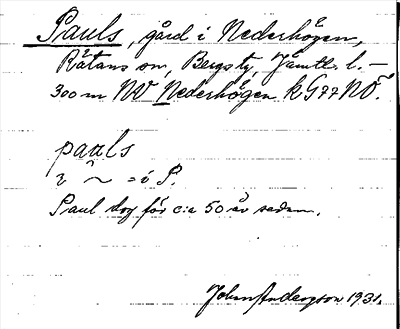 Pauls, gård i Nederhögen,
Rätans sn, Bergs tg, Jämtl. l. —
300 m NV Nederhögen kG77NÖ.
pauls
= i P.
Paul dog för c:a 50 år sedan.
John Anderzson 1931.